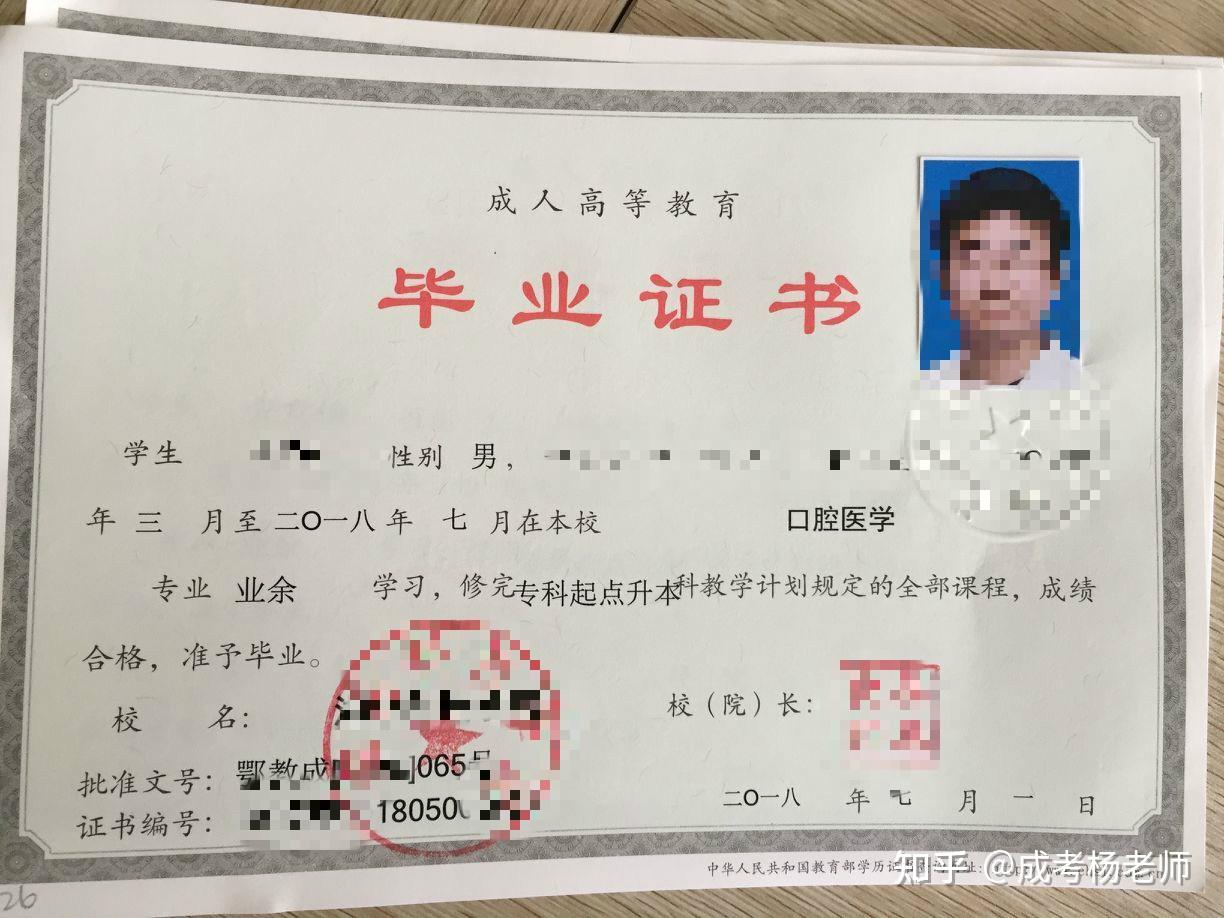 成人高等教育
毕业证书
学生 性别 男，
年 三 月至 二〇一八 年 七 月在本校 口腔医学
专业 业余 学习，修完专科起点升本科教学计划规定的全部课程，成绩
合格，准予毕业。
校 名： 校（院）长：
批准文号：鄂教成 ]065号
二〇一八 年 七 月 一 日
证书编号： 18050
中华人民共和国教育部学历证
知乎 @成考杨老师
26